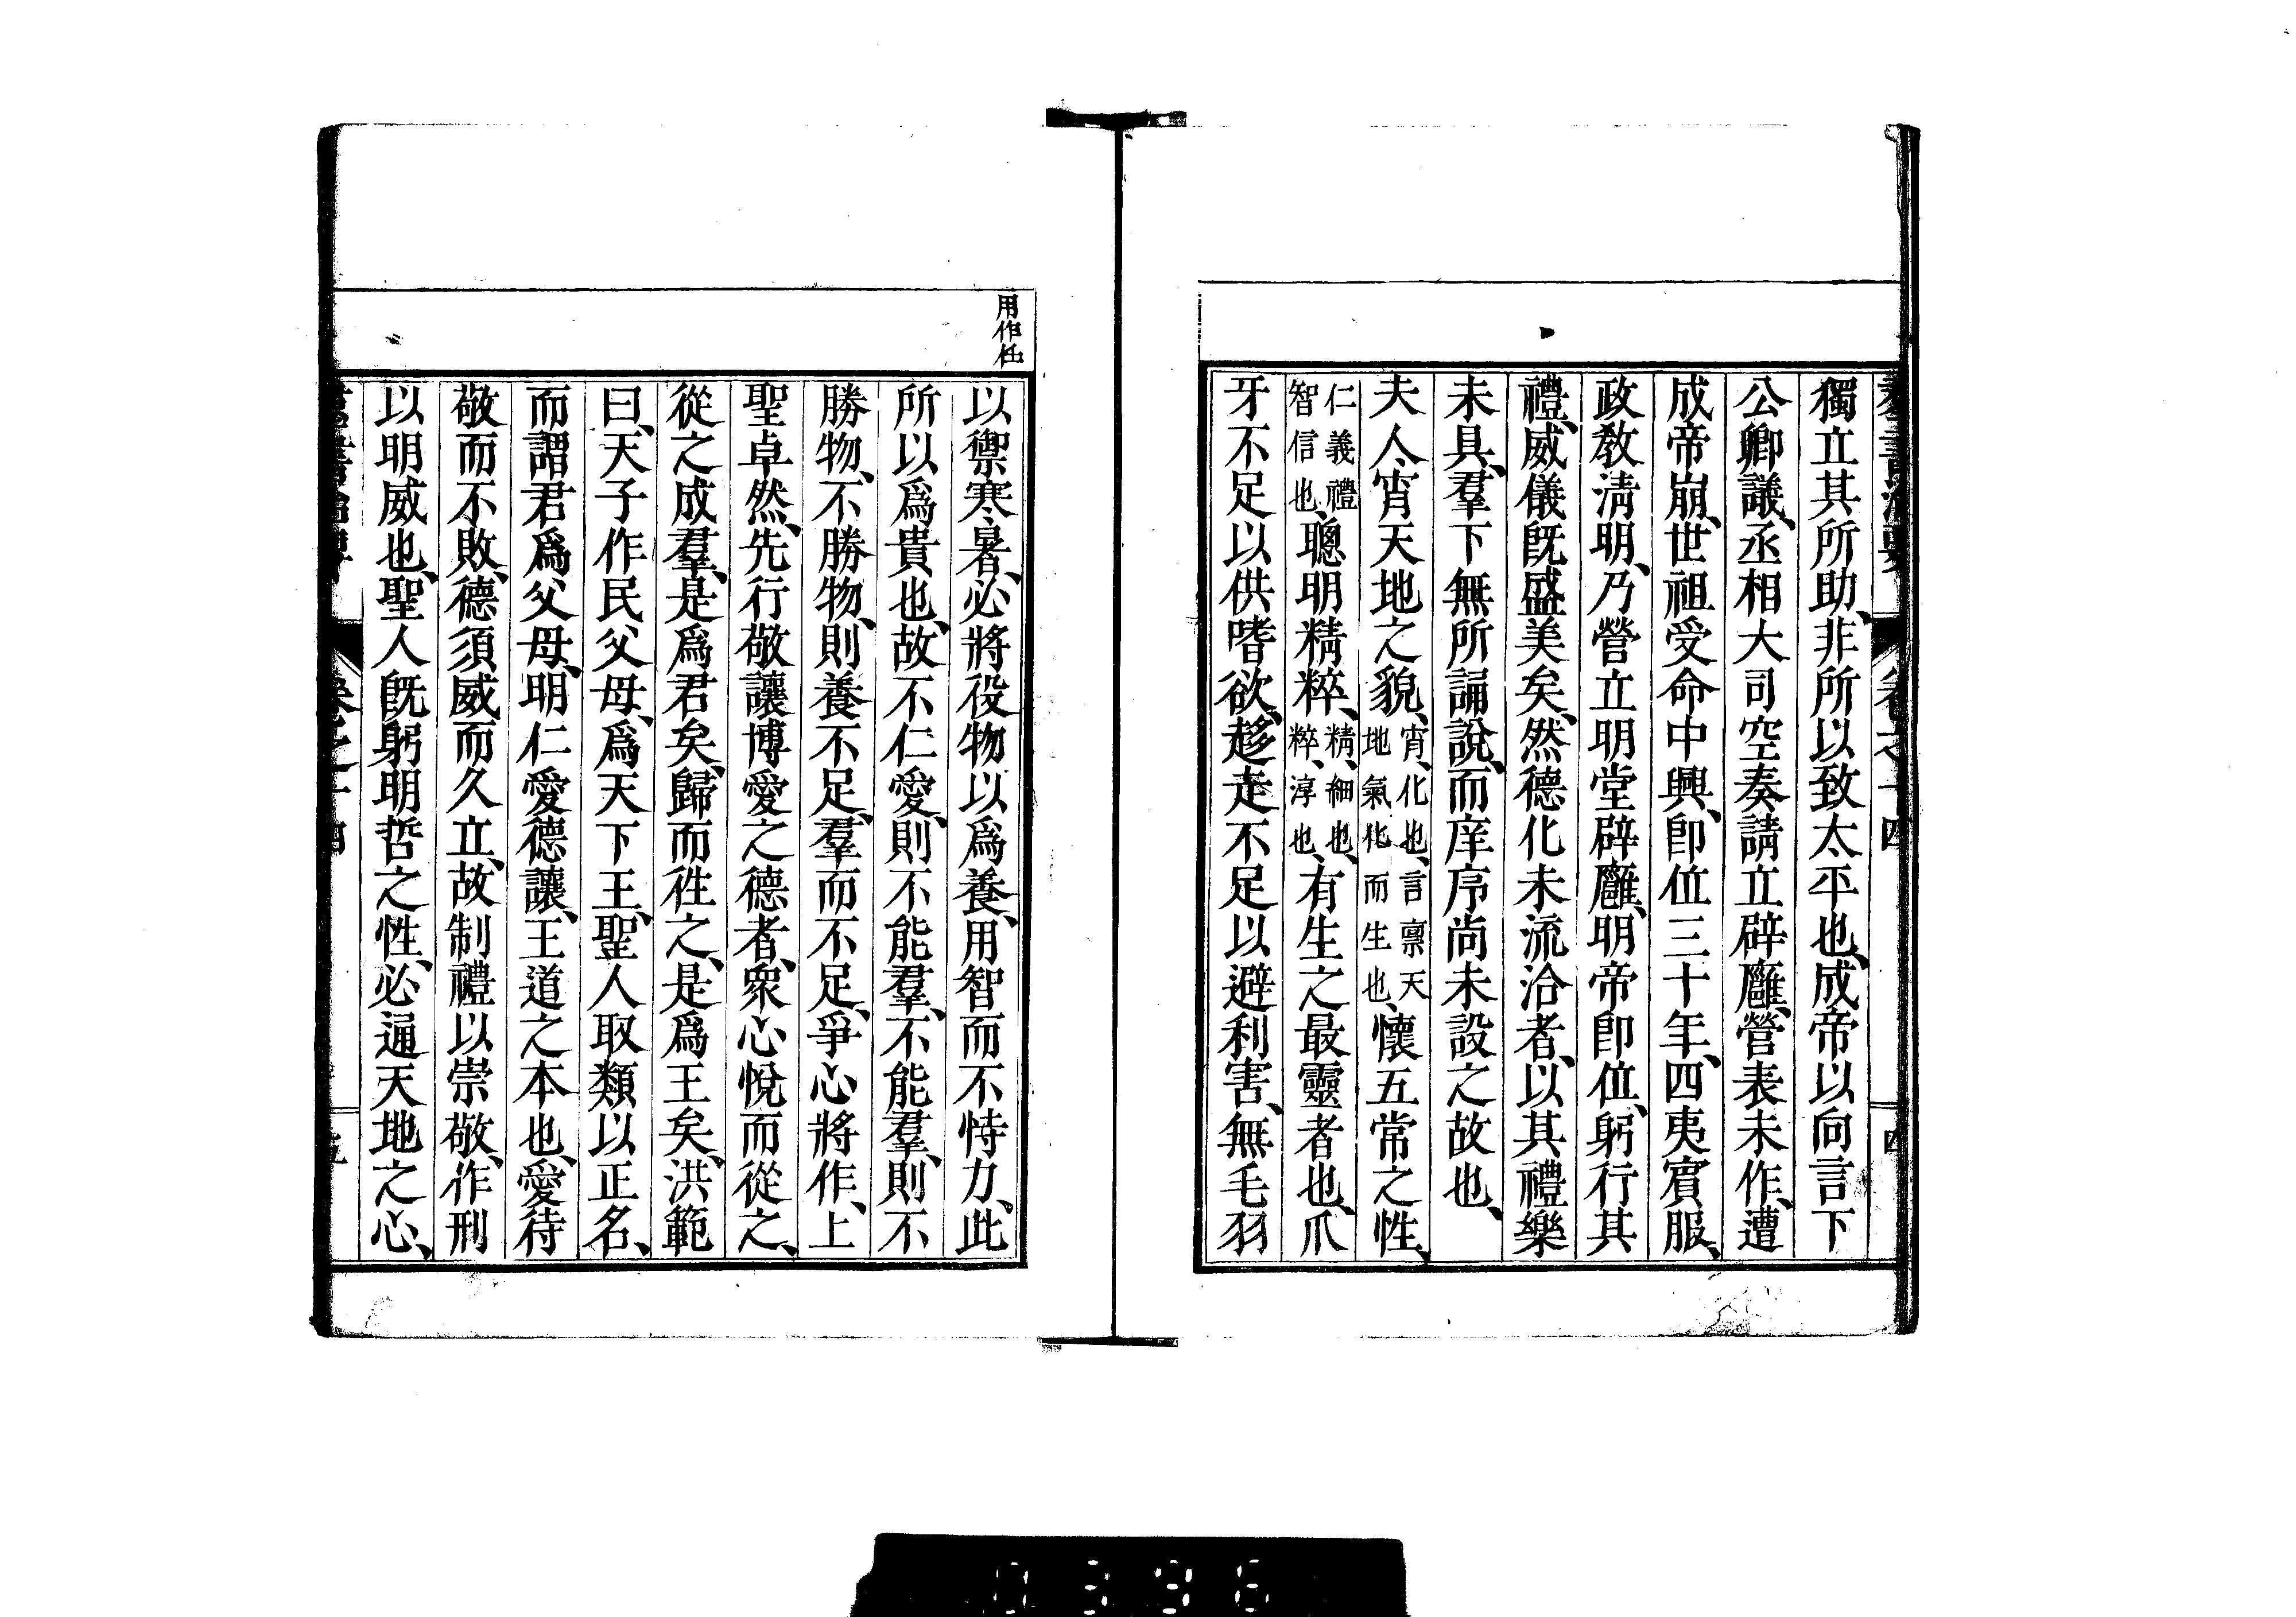 羣書治要 卷之十四 四
獨立其所助、非所以致太平也、成帝以向言下
公卿議、丞相大司空奏請立辟廱、營表未作、遭
成帝崩、世祖受命中興、卽位三十年、四夷賓服、
政教淸明、乃營立明堂辟廱、明帝卽位、躬行其
禮、威儀旣盛美矣、然德化未流洽者、以其禮樂
未具、羣下無所誦說、而庠序尚未設之故也、
夫人宵天地之貌、宵、化也、言禀天地氣化而生也、懷五常之性、
仁義禮智信也、聰明精粹、精、細也、粹、淳也、有生之最靈者也、爪
牙不足以供嗜欲、趍走不足以避利害、無毛羽
用作任
以禦寒暑、必將役物以爲養、用智而不恃力、此
所以爲貴也、故不仁愛、則不能羣、不能羣、則不
勝物、不勝物、則養不足、羣而不足、爭心將作、上
聖卓然、先行敬讓博愛之德者、衆心悅而從之、
從之成羣、是爲君矣、歸而徃之、是爲王矣、洪範
曰、天子作民父母、爲天下王、聖人取類以正名、
而謂君爲父母、明仁愛德讓、王道之本也、愛待
敬而不敗、德須威而久立、故制禮以崇敬、作刑
以明威也、聖人旣躬明哲之性、必通天地之心、
卷之十四